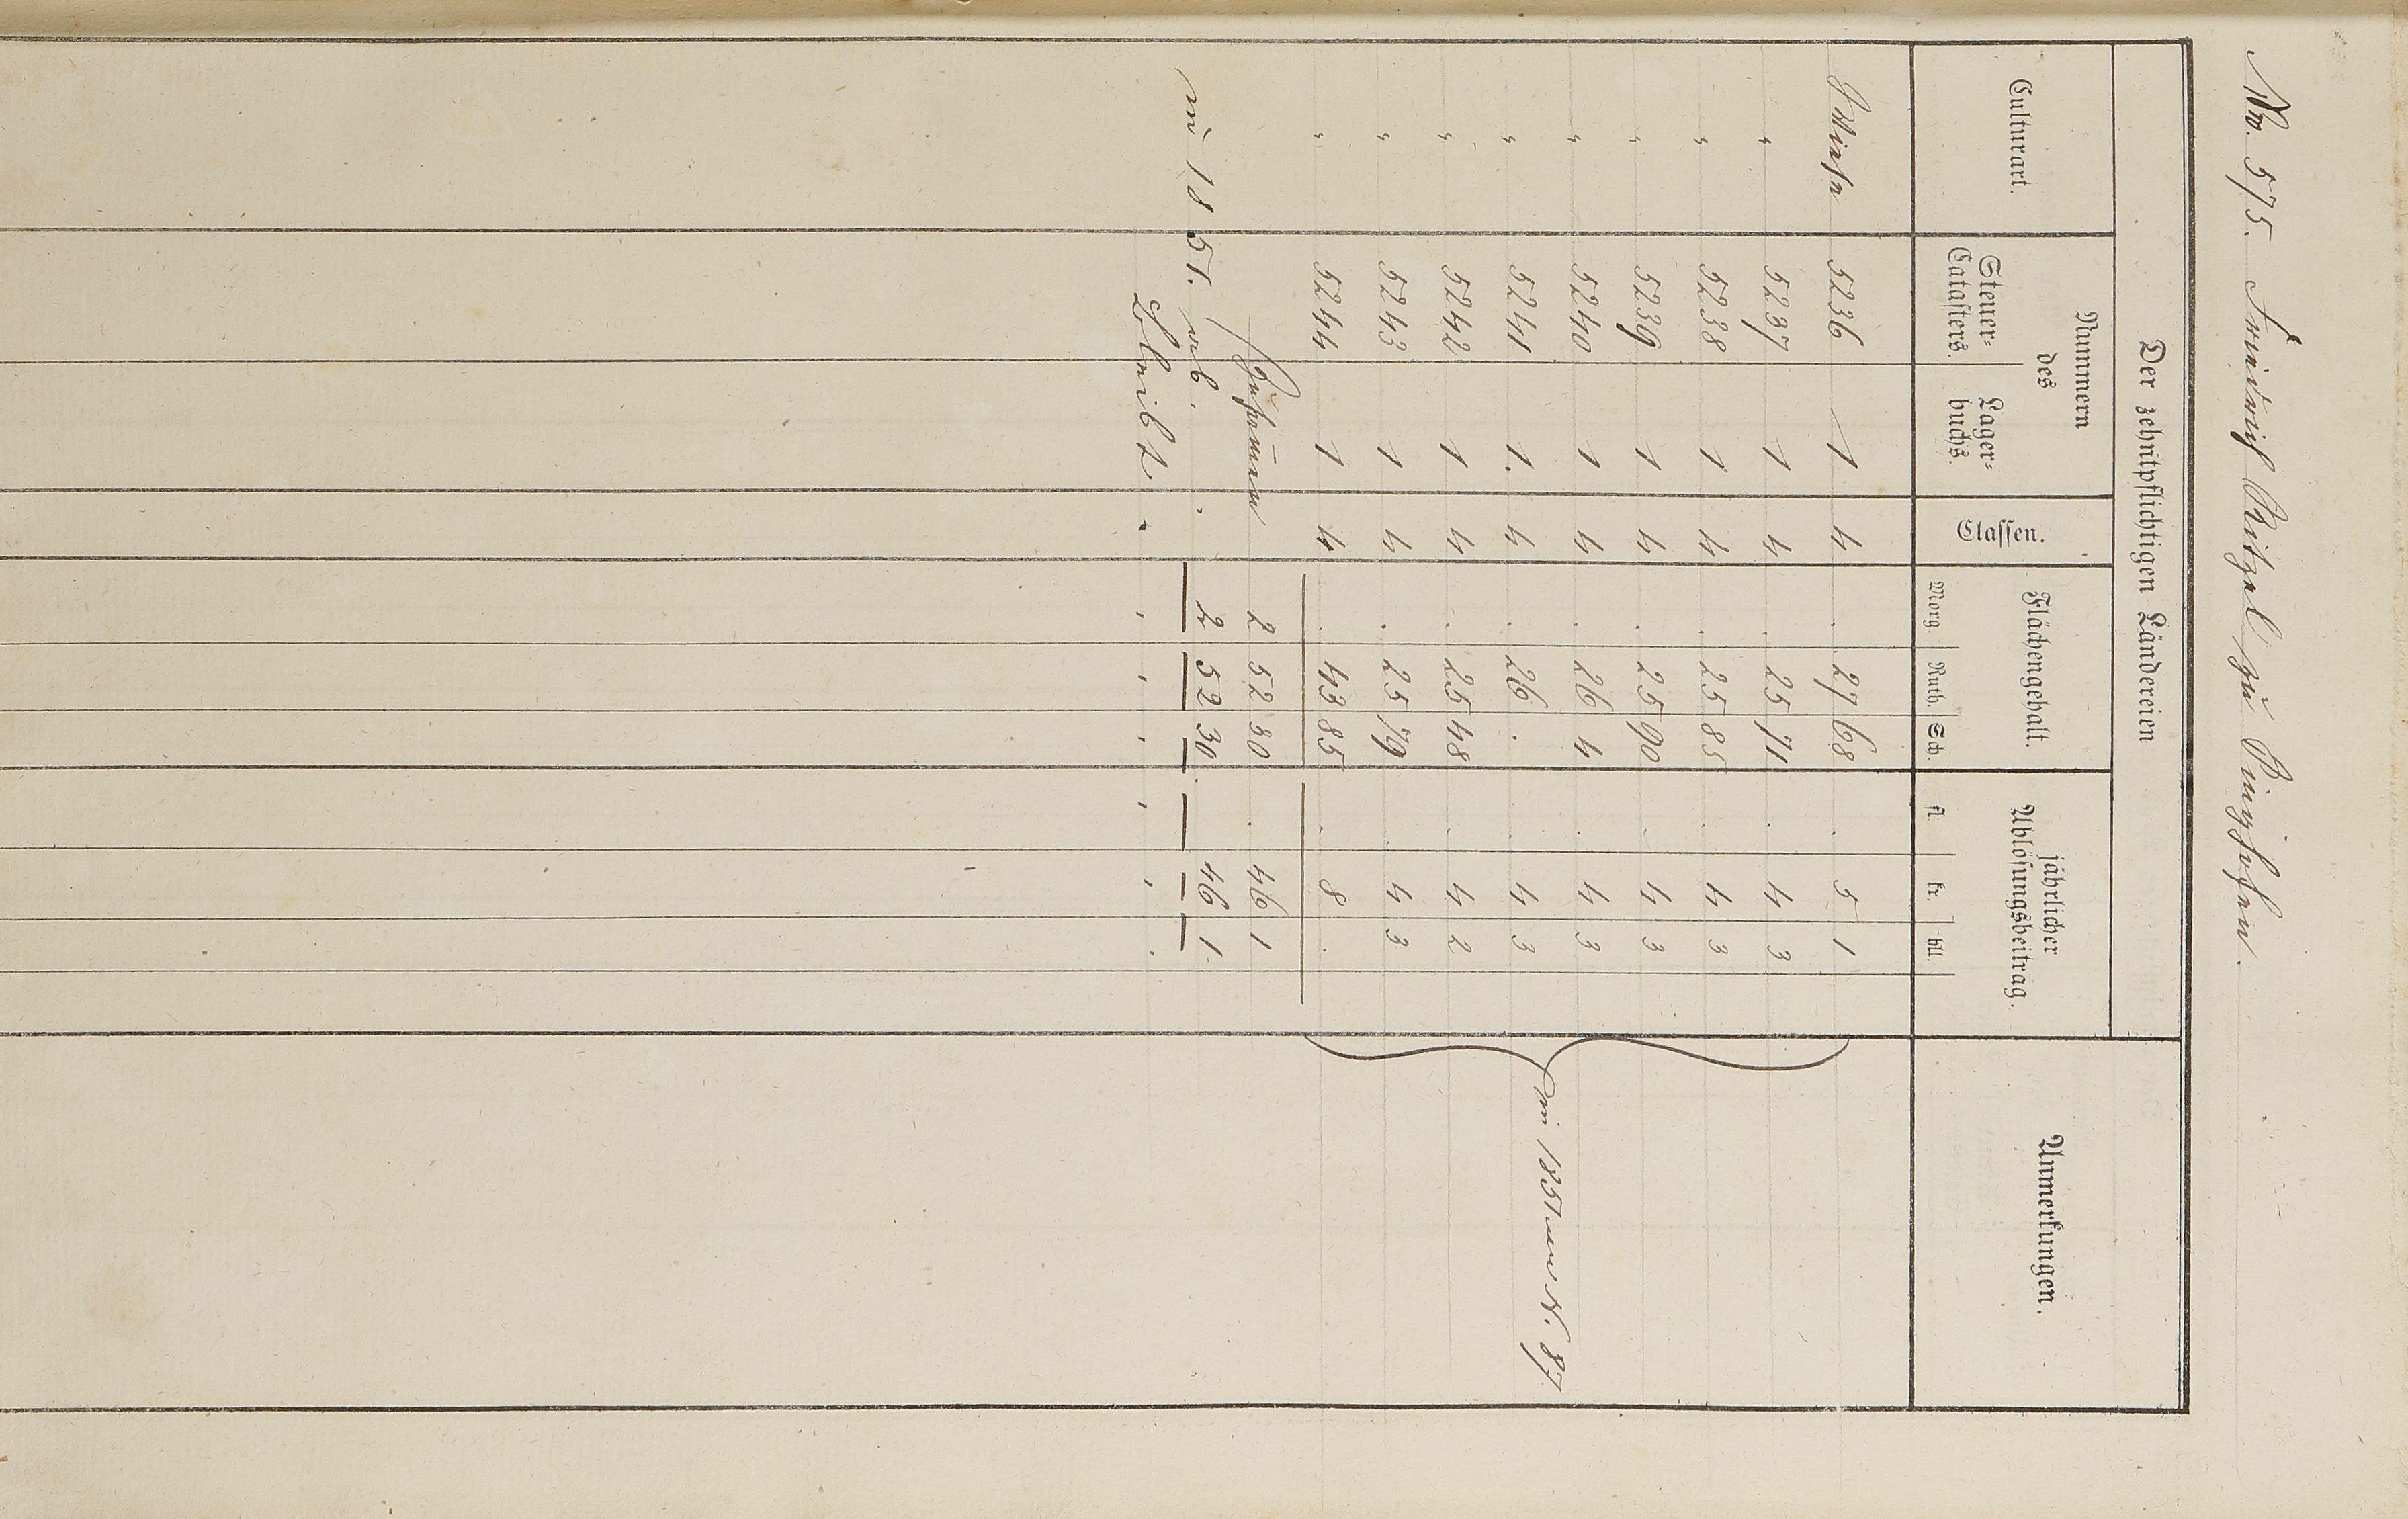 Nro. 575. Friedrich Bitzel zu Ringhofen.
Der zehntpflichtigen Ländereien
Anmerkungen.
Culturart.
Nummern
des
Steuer=
Catasters.
Lager=
buchs.
Classen.
Flächengehalt.
Morg. Ruth. Sch.
jährlicher
Ablösungsbeitrag.
fl. kr. hll.
Wiese 5236 1 4 . 27 68 . 5 1
" 5237 1 4 . 25 71 . 4 3
" 5238 1 4 . 25 85 . 4 3
" 5239 1 4 . 25 90 . 4 3
" 5240 1 4 . 26 4 . 4 3
" 5241 1. 4 . 26 . . 4 3
" 5242 1 4 . 25 48 . 4 2
" 5243 1 4 . 25 79 . 4 3
" 5244 1 4 . 43 85 . 8 .
in 1851 N. 87
Zusammen 2 52 30 . 46 1
in 1851. ab. . 2 52 30 . 46 1
Bleibt " " " " " " "